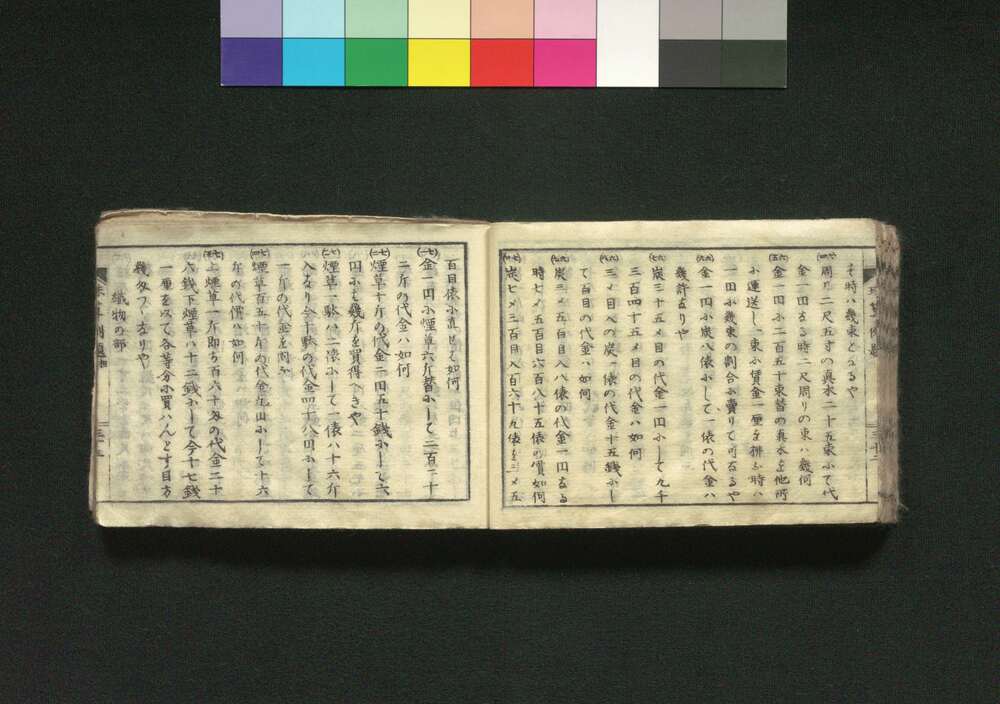 そ時ハ幾束となるや
周り二尺五寸の真木二十五束ふて代
金一円なる時二尺周りの束ハ幾何
金一円ふ二百五十束替の真木を他所
ふ運送し一束ふ賃金一厘を拂ふ時ハ
一円ふ幾束の割合ふ賣りて可なるや
金一円ふ炭八俵ふして一俵の代金ハ
幾許なりや
炭三十五メ目の代金一円ふして九千
三百四十五メ目の代金ハ如何
三メ目入の炭一俵の代金十五銭ふし
て百目の代金ハ如何
炭三メ五百目入八俵の代金一円なる
時七メ五百目六百八十五俵の價如何
炭七メ三百目入百六十九俵を三メ五
百目俵ふ直して如何
金一円ふ煙草六斤替ふして二百二十
二斤の代金ハ如何
煙草十斤の代金二円五十銭ふして六
円ふハ幾斤を買得べきや
煙草一駄ハ二懷ふして一俵ハ十六斤
入なり今十駄の代金四十八円ふして
一斤の代金を問ふ
煙草百五十斤の代金九円ふして十六
斤の代價ハ如何
上煙草一斤即ち百六十匁の代金二十
六銭下煙草ハ十二銭ふして今十七銭
一厘を以て各等分ふ買ハんとす目方
幾匁づゝなりや
織物の部